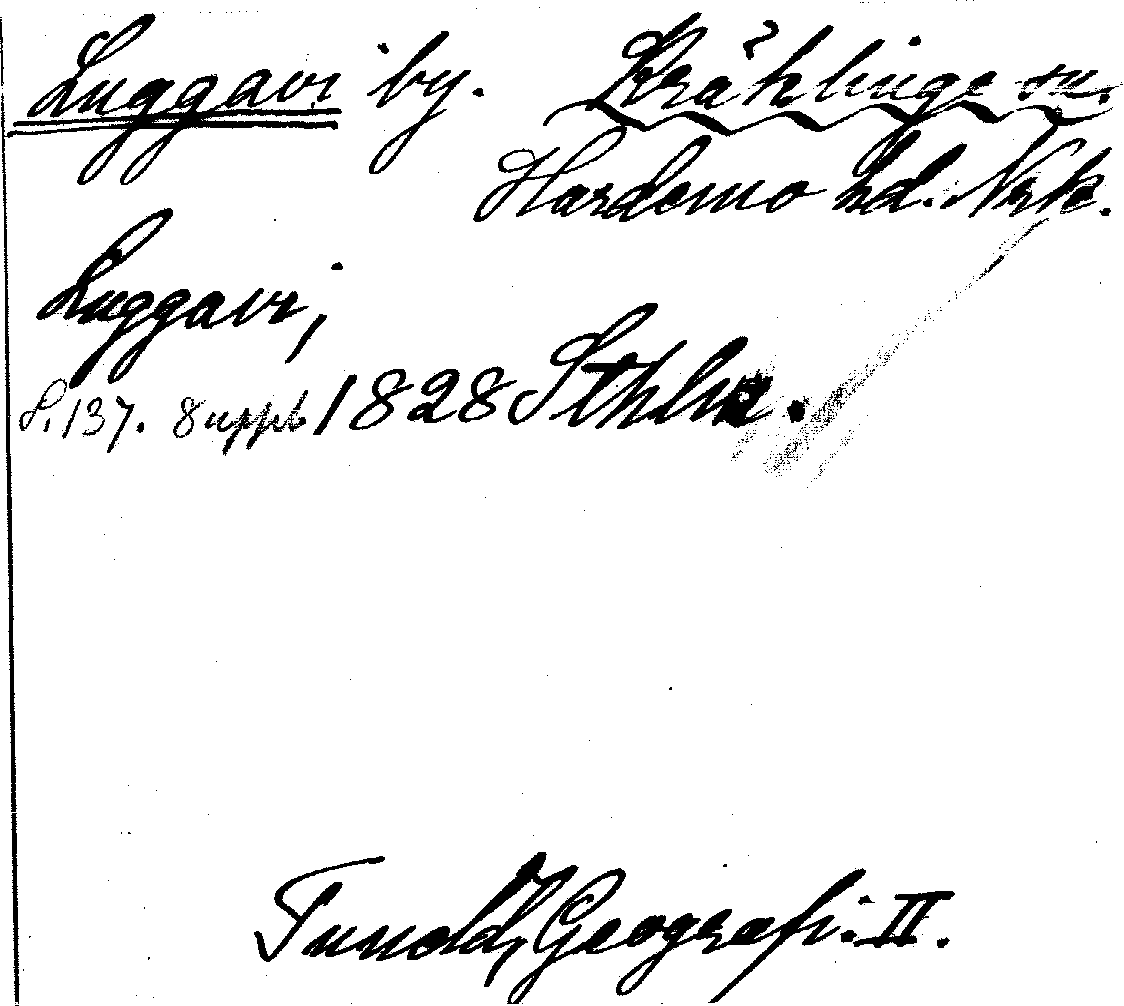 Luggavi by. Kräklinge sn.
Hardemo hd. Nrk.
Luggavi,
S. 137. 8 uppl. 1828 Sthlm.
Tunold, Geografi. II.